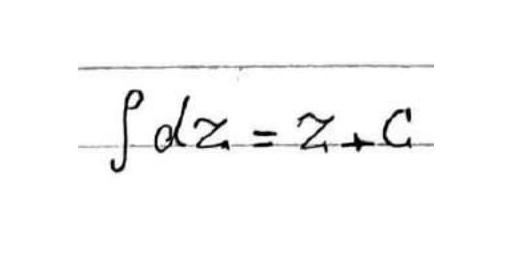 ∫dz = z + C